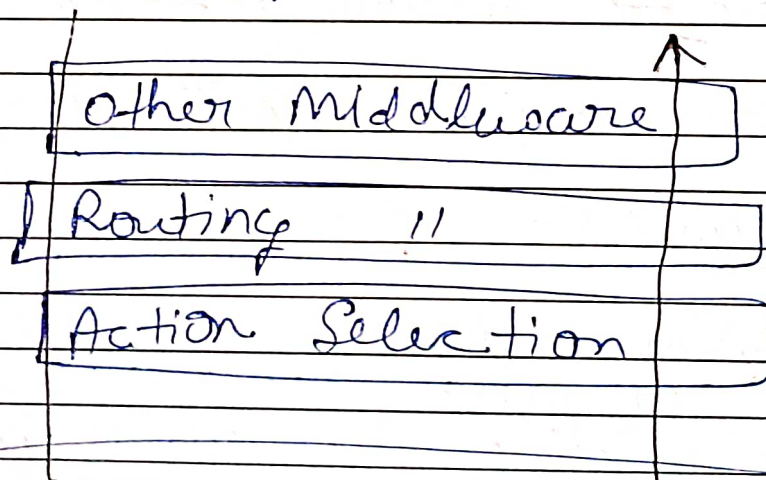 Other Middleware
Routing "
Action Selection